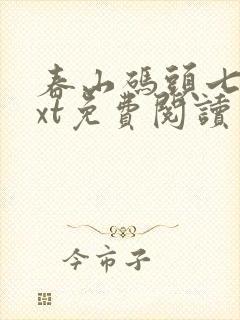 春山碼頭七
xt免費閱讀
今市子